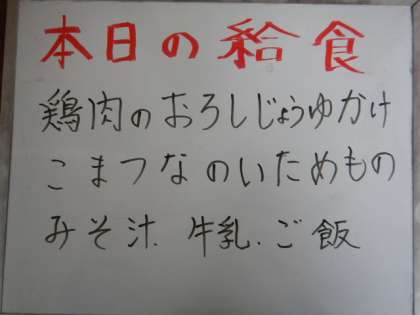 本日の給食
鶏肉のおろしじょうゆかけ
こまつなのいためもの
みそ汁.牛乳.ご飯